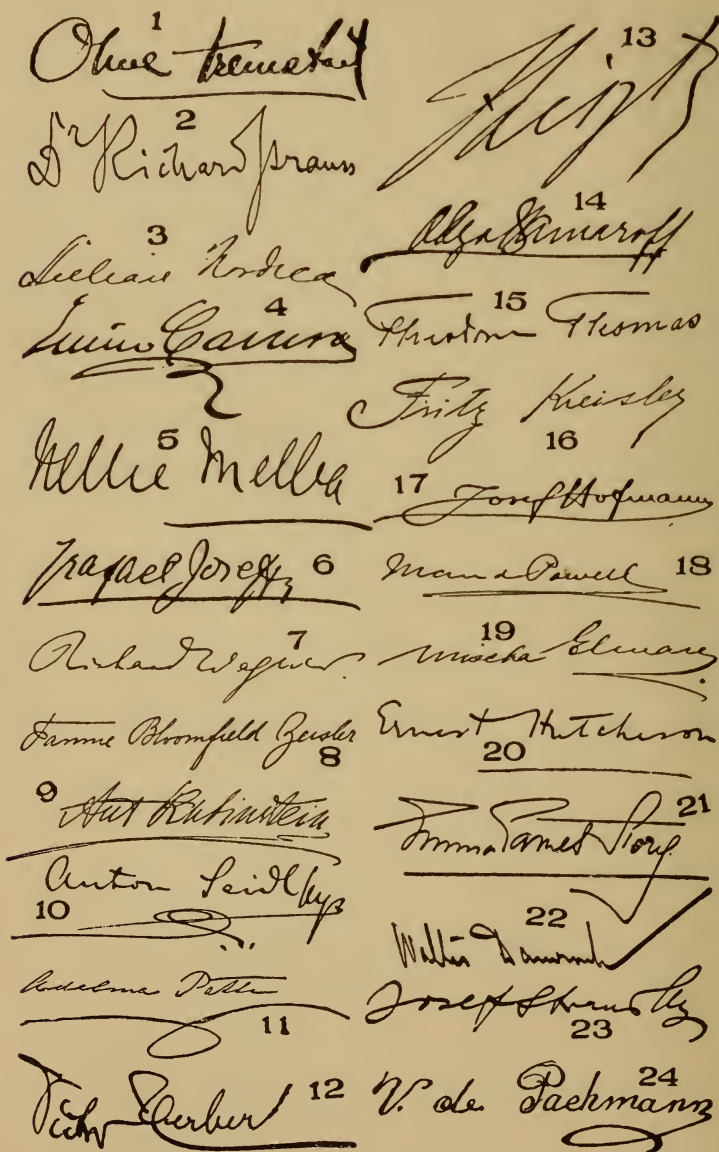 1
Olive Fremstad
2
Dr Richard Strauss
3
Lillian Nordica
4
Enrico Caruso
5
Nellie Melba
Rafael Joseffy 6
7
Richard Wagner
Fannie Bloomfield Zeisler
8
9
Ant Rubinstein
Anton Seidl
10
Adelina Patti
11
Victor Herbert 12
13
14
Olga Samaroff
15
Theodore Thomas
Fritz Kreisler
16
17 Josef Hofmann
Maud Powell 18
19
Mischa Elman
Ernest Hutcheson
20
21
Emma Eames Story
22
Walter Damrosch
Josef Stransky
23
24
V. de Pachmann